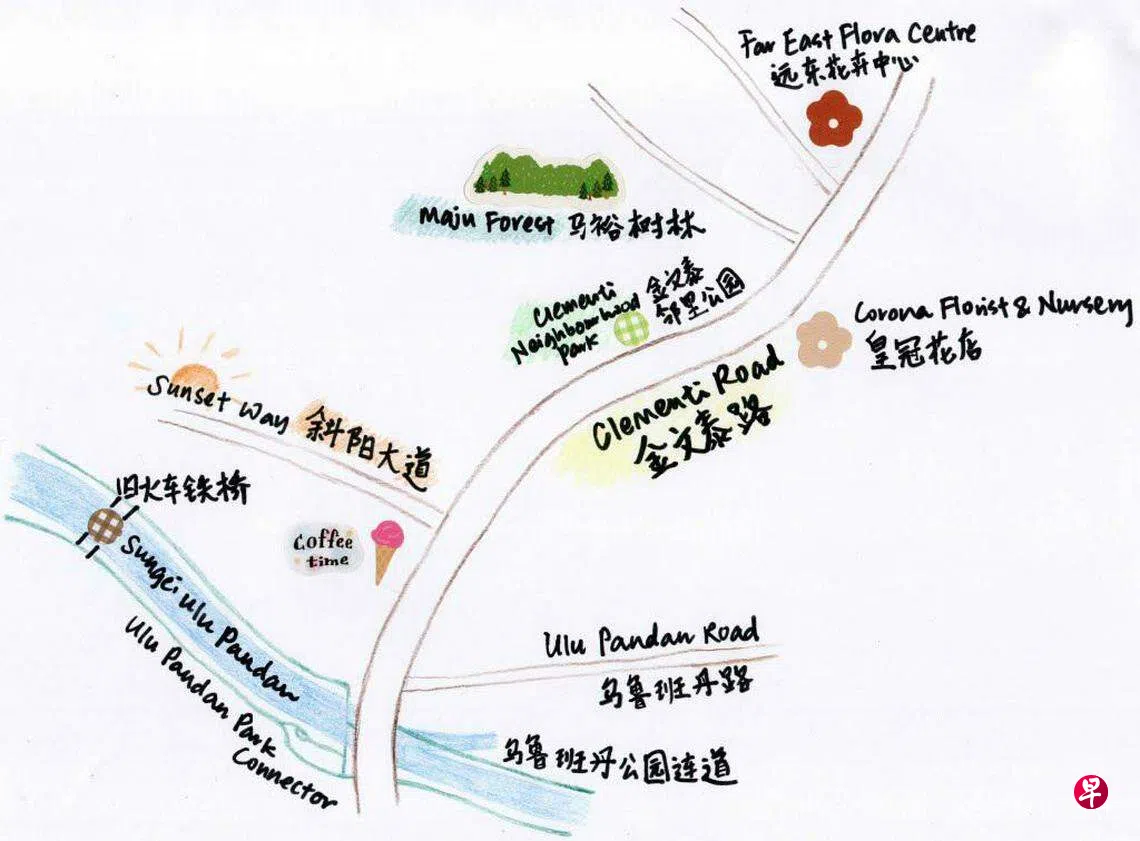 Far East Flora Centre
远东花卉中心
Maju Forest 马裕树林
Clementi
Neighbourhood
Park
金文泰
邻里公园
Corona Florist & Nursery
皇冠花店
Clementi Road
金文泰路
Sunset Way 斜阳大道
旧火车铁桥
Coffee
time
Sungei Ulu Pandan
Ulu Pandan Park
Connector
Ulu Pandan Road
乌鲁班丹路
乌鲁班丹公园连道
早